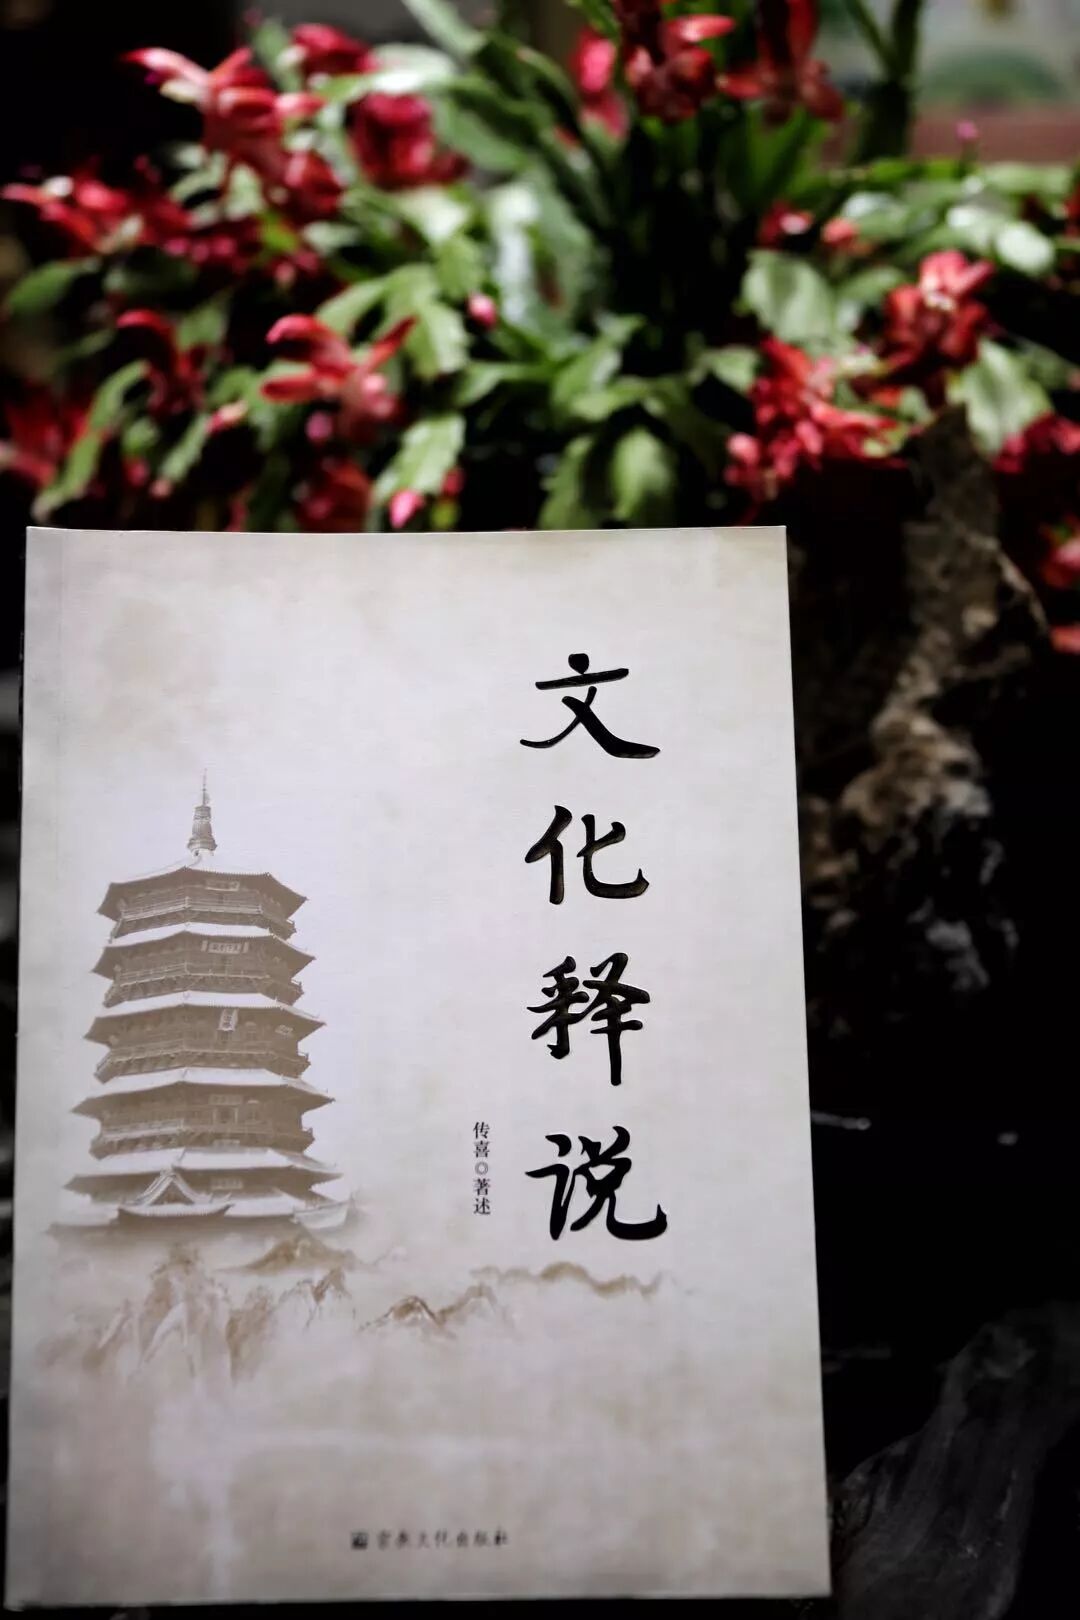 文化释说
传喜◎著述
宗教文化出版社